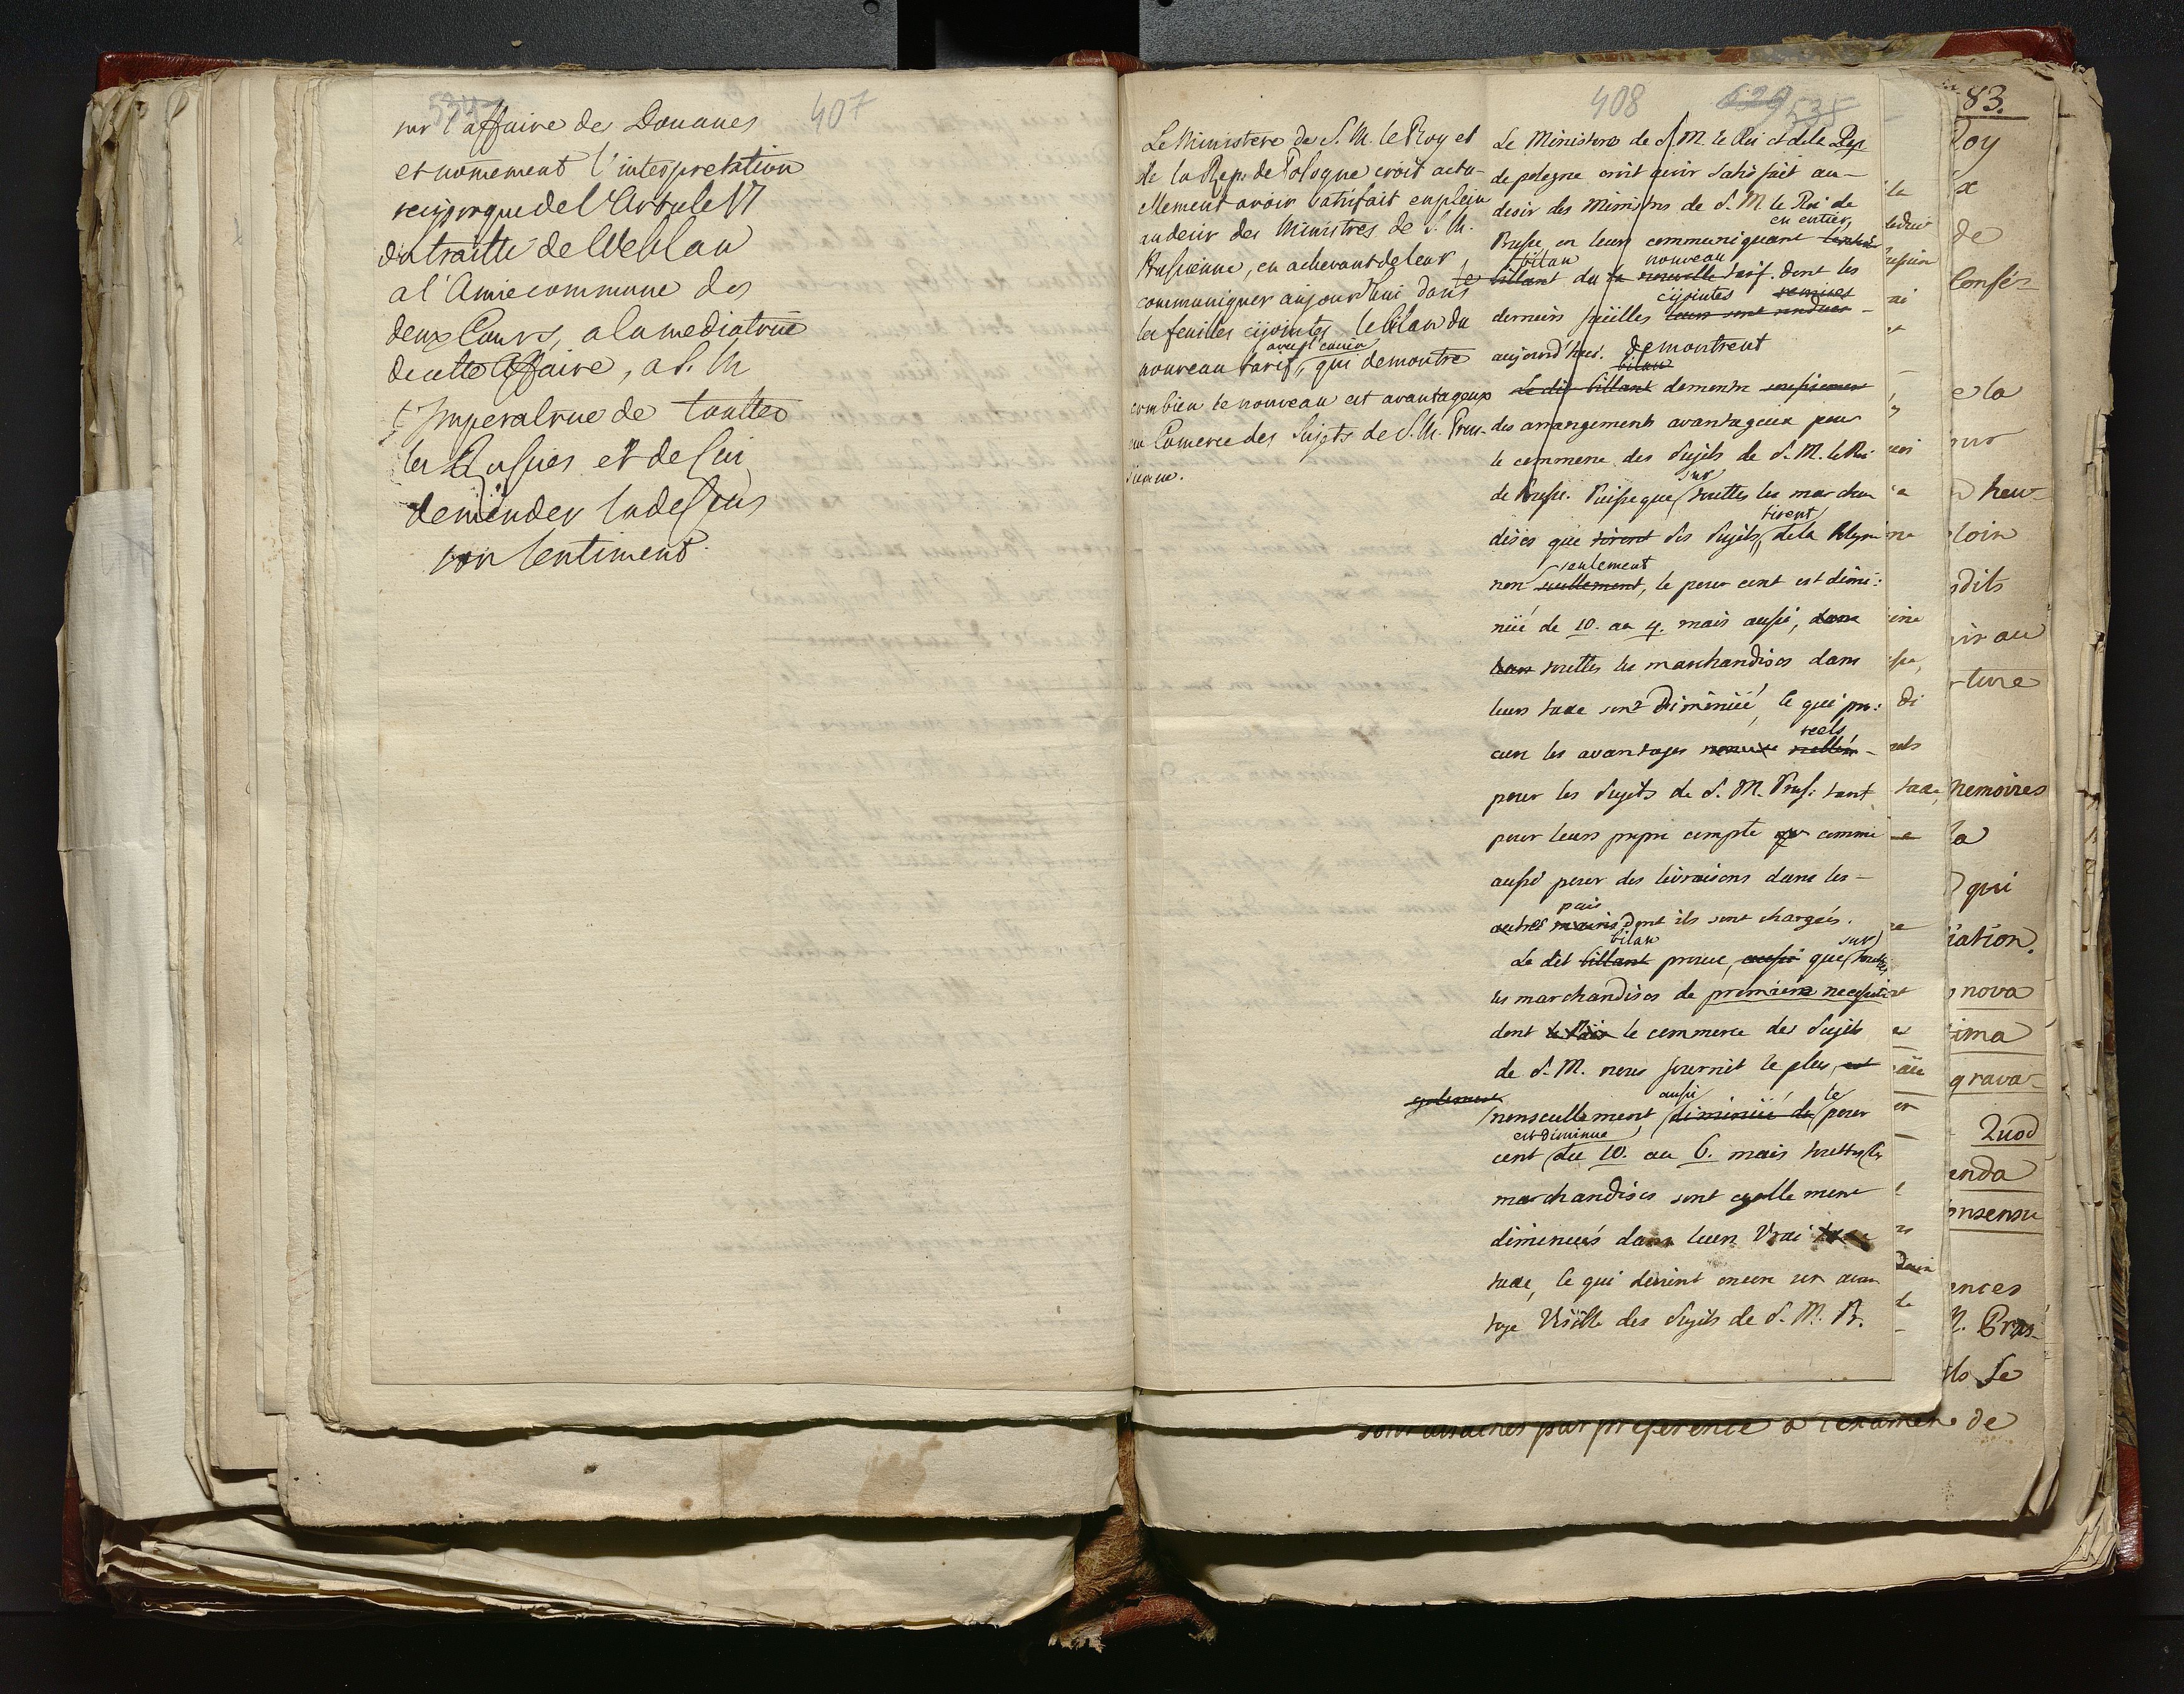 534 407
sur l'affaire des Douanes
et nomement l'interpretation
reciproque de l'Article VI
du traitté de Wehlau
a l'Amie commune des
deux Cours, a la mediatrice
de cette affaire, a S. M
l'Imperatrice de touttes
les Russies et de lui
demender la dessus
son sentiment.
Le Ministere de S. M. le Roy et
de la Rep. de Pologne croit actu-
ellement avoir satisfait en plein
au desir des Ministres de S. M.
Prussienne, en achevant de leur
communiquer aujourd'hui dans
les feuilles cijointes le bilan du
nouveau tarif, qui demontre
combien le nouveau est avantageux
au Comerce des Sujets de S. M. Prus-
sienne.
408 535
Le Ministere de S. M. le Roi et de la Rep.
de pologne croit avoir satisfait au
desir des Ministres de S. M. le Roi de
en entier
Prusse, en leurs communiquant
bilan nouveau
le billant du la nouvelle tarif. dont les
cijointes remises
derniers feüilles leurs sont rendues
aujourd'hui. demontrent
bilan
Le dit billant demontre
des arrangements avantageux pour
le commerce des Sujets de S. M. le Roi
sur
de Prusse. Puisque touttes les marchan
tirent
dises que tirent ses Sujets, de la Pologne
seulement
non seullement, le pour cent est dimi:
nüé de 10. au 4. mais aussi, dans
leur touttes les marchandises dans
leurs taxe sont diminüé, ce qui pro:
reels
cure les avantages
pour les Sujets de S. M. Pruss: tant
pour leurs propre compte que comme
aussi pour des livraisons dans les
pais
autres mains dont ils sont chargés.
bilan sur
Le dit billant prouve, aussi que touttes
les marchandises de premiere necessité
dont le Païs le commerce des Sujets
de S. M. nous fournit le plus, est
egalement
aussi le
nonseullement diminüé de pour
est diminue
cent du 10. au 6. mais touttes les
marchandises sont egallement
diminués dans leurs vrai taxe
taxe, ce qui devient encore un avan
tage visible des Sujets de S. M. P.
83.
Roy
de
Consé-
e la
heu-
loin
ndits
ir au
rture
memoires
la
qui
iation.
nova
ima
grava-
Quod
enda
onsensu
ences
M. Prus-
ls se
par preference a l'examen de